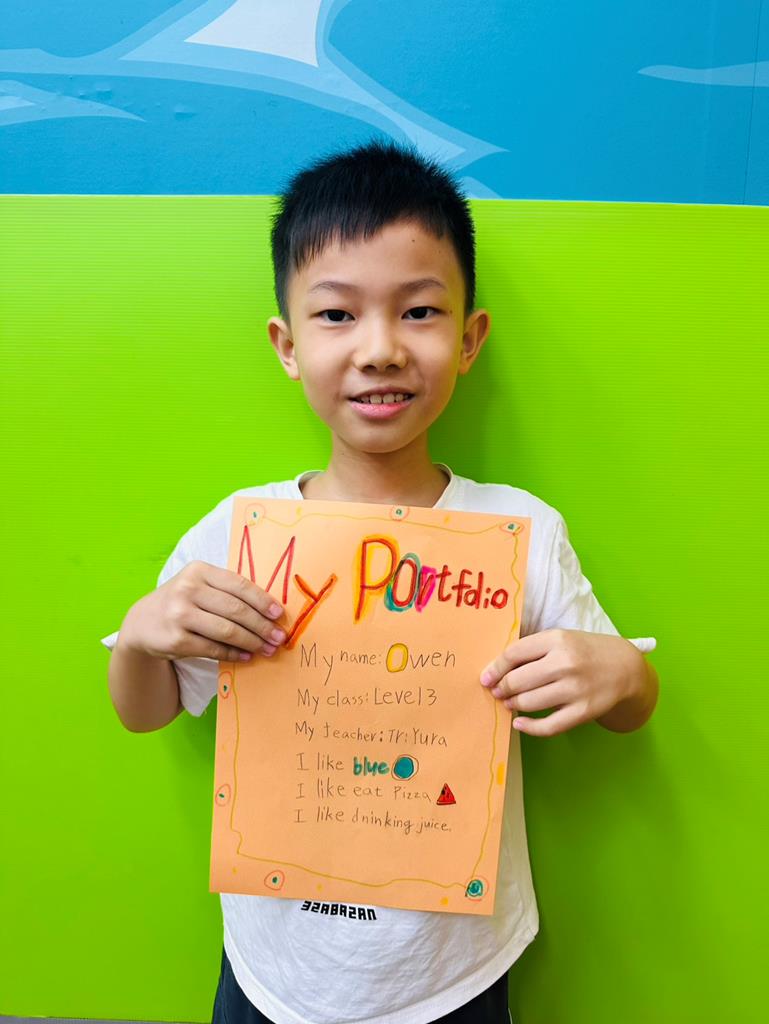 My Portfolio
My name: Owen
My class: Level 3
My teacher: Tr: Yura
I like blue
I like eat Pizza
I like dninking juice.